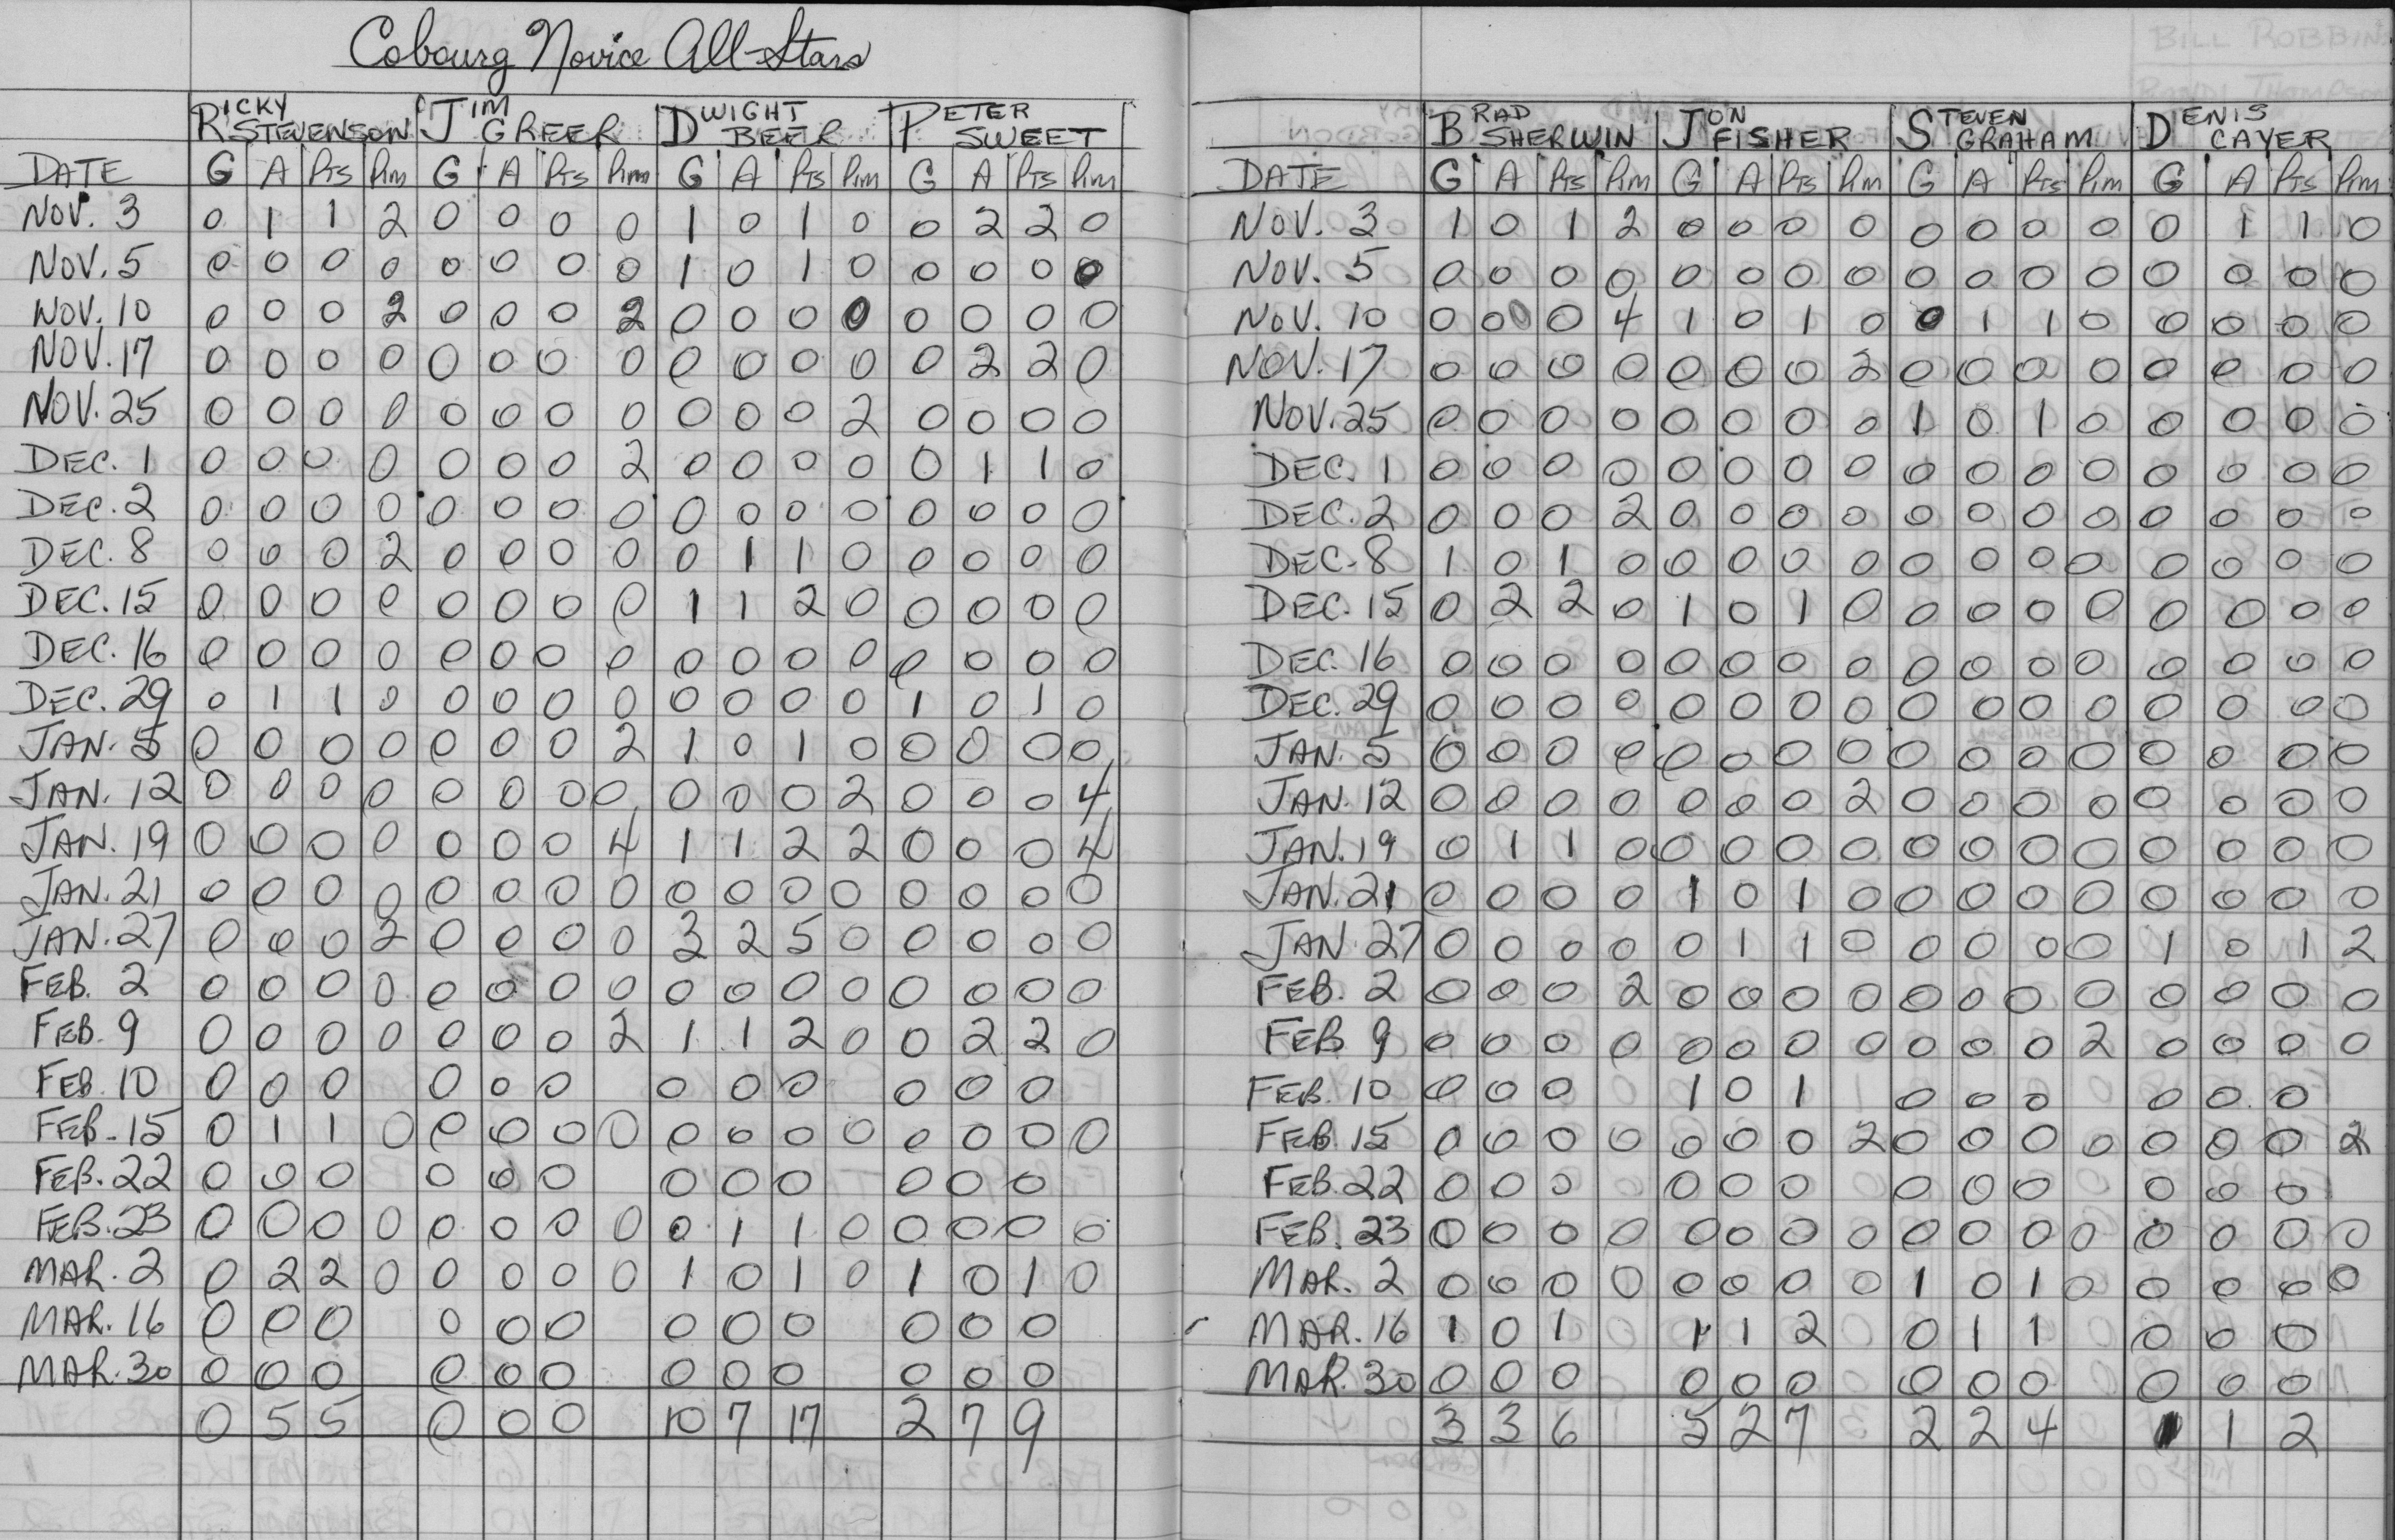 Cobourg Novice All-Stars
RICKY STEVENSON JIM GREER DWIGHT BEER PETER SWEET
DATE G A Pts Pim G A Pts Pim G A Pts Pim G A Pts Pim
NOV. 3 0 1 1 2 0 0 0 0 1 0 1 0 0 2 2 0
NOV. 5 0 0 0 0 0 0 0 0 1 0 1 0 0 0 0 0
NOV. 10 0 0 0 2 0 0 0 2 0 0 0 0 0 0 0 0
NOV. 17 0 0 0 0 0 0 0 0 0 0 0 0 0 2 2 0
NOV. 25 0 0 0 0 0 0 0 0 0 0 0 2 0 0 0 0
DEC. 1 0 0 0 0 0 0 0 2 0 0 0 0 0 1 1 0
DEC. 2 0 0 0 0 0 0 0 0 0 0 0 0 0 0 0 0
DEC. 8 0 0 0 2 0 0 0 0 0 1 1 0 0 0 0 0
DEC. 15 0 0 0 0 0 0 0 0 1 1 2 0 0 0 0 0
DEC. 16 0 0 0 0 0 0 0 0 0 0 0 0 0 0 0 0
DEC. 29 0 1 1 0 0 0 0 0 0 0 0 0 1 0 1 0
JAN. 5 0 0 0 0 0 0 0 2 1 0 1 0 0 0 0 0
JAN. 12 0 0 0 0 0 0 0 0 0 0 0 2 0 0 0 4
JAN. 19 0 0 0 0 0 0 0 4 1 1 2 2 0 0 0 4
JAN. 21 0 0 0 0 0 0 0 0 0 0 0 0 0 0 0 0
JAN. 27 0 0 0 2 0 0 0 0 3 2 5 0 0 0 0 0
FEB. 2 0 0 0 0 0 0 0 0 0 0 0 0 0 0 0 0
FEB. 9 0 0 0 0 0 0 0 2 1 1 2 0 0 2 2 0
FEB. 10 0 0 0 0 0 0 0 0 0 0 0 0
FEB. 15 0 1 1 0 0 0 0 0 0 0 0 0 0 0 0 0
FEB. 22 0 0 0 0 0 0 0 0 0 0 0 0
FEB. 23 0 0 0 0 0 0 0 0 0 1 1 0 0 0 0 0
MAR. 2 0 2 2 0 0 0 0 0 1 0 1 0 1 0 1 0
MAR. 16 0 0 0 0 0 0 0 0 0 0 0 0
MAR. 30 0 0 0 0 0 0 0 0 0 0 0 0
0 5 5 0 0 0 10 7 17 2 7 9
BRAD SHERWIN JON FISHER STEVEN GRAHAM DENIS CAYER
DATE G A Pts Pim G A Pts Pim G A Pts Pim G A Pts Pim
NOV. 3 1 0 1 2 0 0 0 0 0 0 0 0 0 1 1 0
NOV. 5 0 0 0 0 0 0 0 0 0 0 0 0 0 0 0 0
NOV. 10 0 0 0 4 1 0 1 0 0 1 1 0 0 0 0 0
NOV. 17 0 0 0 0 0 0 0 2 0 0 0 0 0 0 0 0
NOV. 25 0 0 0 0 0 0 0 0 1 0 1 0 0 0 0 0
DEC. 1 0 0 0 0 0 0 0 0 0 0 0 0 0 0 0 0
DEC. 2 0 0 0 2 0 0 0 0 0 0 0 0 0 0 0 0
DEC. 8 1 0 1 0 0 0 0 0 0 0 0 0 0 0 0 0
DEC. 15 0 2 2 0 1 0 1 0 0 0 0 0 0 0 0 0
DEC. 16 0 0 0 0 0 0 0 0 0 0 0 0 0 0 0 0
DEC. 29 0 0 0 0 0 0 0 0 0 0 0 0 0 0 0 0
JAN. 5 0 0 0 0 0 0 0 0 0 0 0 0 0 0 0 0
JAN. 12 0 0 0 0 0 0 0 2 0 0 0 0 0 0 0 0
JAN. 19 0 1 1 0 0 0 0 0 0 0 0 0 0 0 0 0
JAN. 21 0 0 0 0 1 0 1 0 0 0 0 0 0 0 0 0
JAN. 27 0 0 0 0 0 1 1 0 0 0 0 0 1 0 1 2
FEB. 2 0 0 0 2 0 0 0 0 0 0 0 0 0 0 0 0
FEB 9 0 0 0 0 0 0 0 0 0 0 0 2 0 0 0 0
FEB. 10 0 0 0 1 0 1 0 0 0 0 0 0
FEB. 15 0 0 0 0 0 0 0 2 0 0 0 0 0 0 0 2
FEB. 22 0 0 0 0 0 0 0 0 0 0 0 0
FEB. 23 0 0 0 0 0 0 0 0 0 0 0 0 0 0 0 0
MAR. 2 0 0 0 0 0 0 0 0 1 0 1 0 0 0 0 0
MAR. 16 1 0 1 1 1 2 0 1 1 0 0 0
MAR. 30 0 0 0 0 0 0 0 0 0 0 0 0
3 3 6 5 2 7 2 2 4 1 1 2